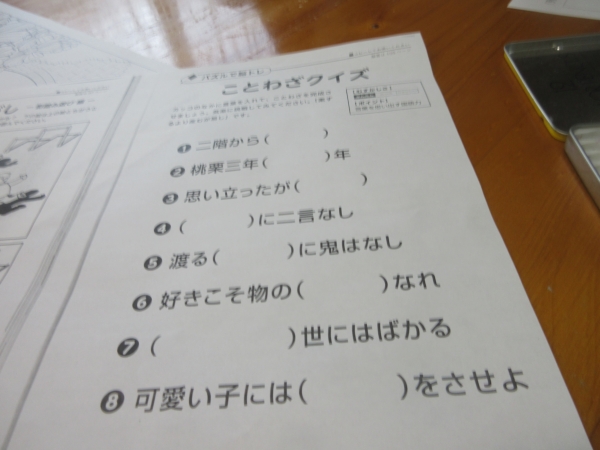 パズルで脳トレ
ことわざクイズ
❶ 二階から(　　　)
❷ 桃栗三年(　　　)年
❸ 思い立ったが(　　　)
❹ (　　　)に二言なし
❺ 渡る(　　　)に鬼はなし
❻ 好きこそ物の(　　　)なれ
❼ (　　　)世にはばかる
❽ 可愛い子には(　　　)をさせよ